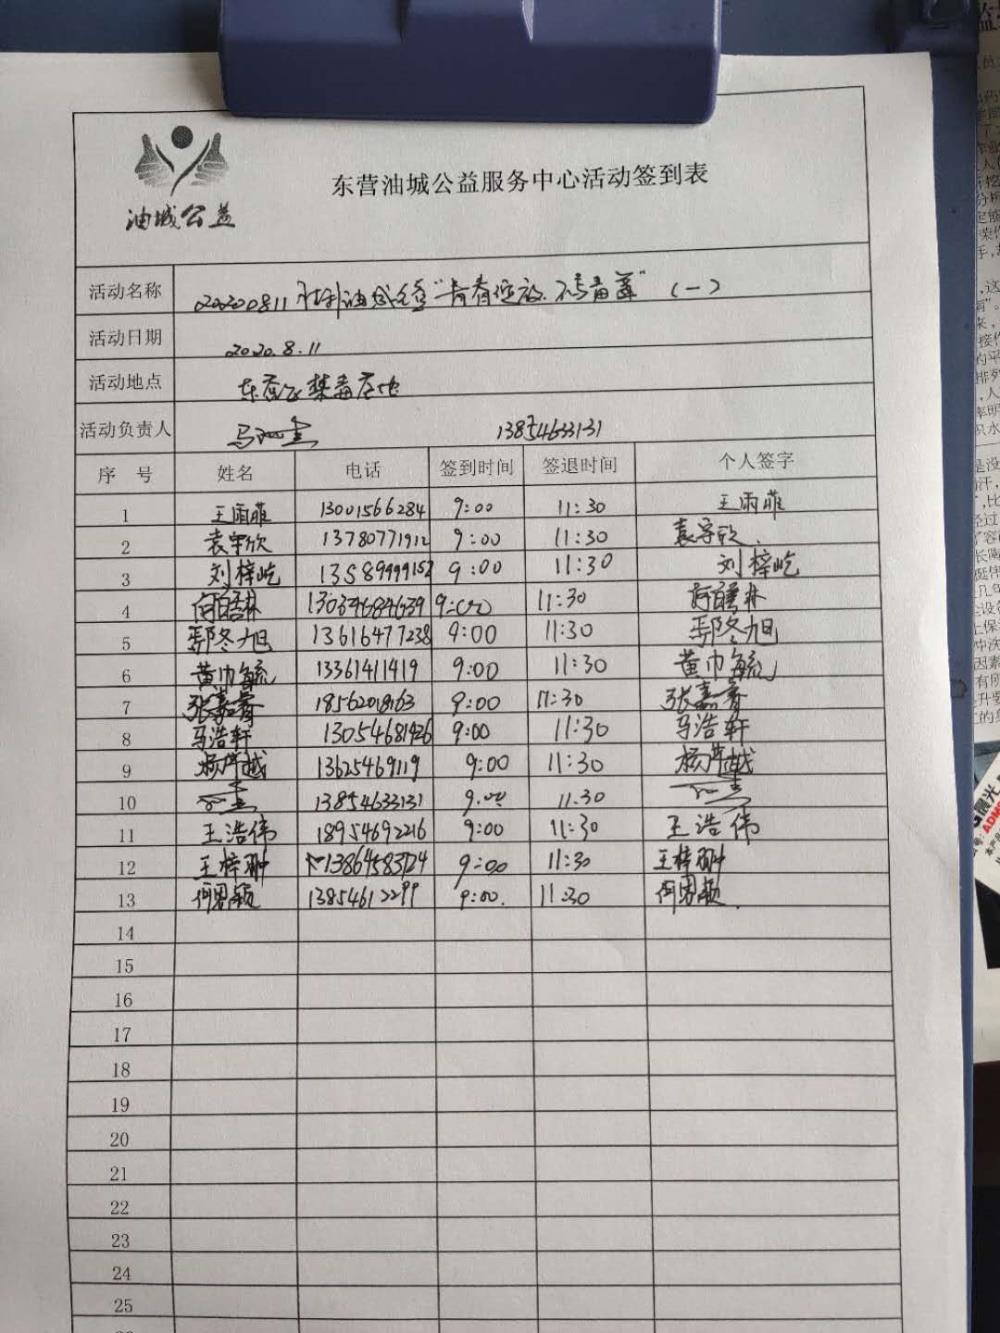 油城公益
东营油城公益服务中心活动签到表
活动名称 20200811 油城公益“青春绽放 不“毒”(一)
活动日期 2020.8.11
活动地点 东营区禁毒基地
活动负责人 马 13854633131
序 号 姓名 电话 签到时间 签退时间 个人签字
1 王雨菲 13001566284 9:00 11:30 王雨菲
2 袁宇欣 13780771912 9:00 11:30 袁宇欣.
3 刘梓屹 13589999152 9:00 11:30 刘梓屹
4 9:00 11:30
5 鄢冬旭 13616477238 9:00 11:30 鄢冬旭
6 黄巾毓 13361411419 9:00 11:30 黄巾毓
7 张嘉睿 18562018163 9:00 11:30 张嘉睿
8 马浩轩 13054681926 9:00 11:30 马浩轩
9 杨芦越 13625469119 9:00 11:30 杨芦越
10 13854633131 9:00 11.30
11 王浩伟 18954692216 9:00 11:30 王浩伟
12 王梓翀 13864583724 9:00 11:30 王梓翀
13 何恩颖 13854612299 9:00. 11:30 何恩颖.
14
15
16
17
18
19
20
21
22
23
24
25
晨光